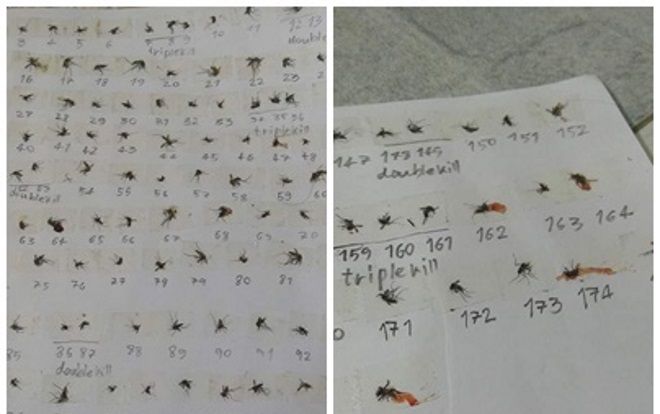 3 4 5 6 7 8 9 10 11 12 13
triplekill double
16 17 18 19 20 21 22 23
27 28 29 30 31 32 33 34 35 36
triplekill
40 41 42 43 44 45 46 47 48
52 53 54 55 56 57 58 59 60
doublekill
63 64 65 66 67 68 69 70
75 76 77 78 79 80 81
85 86 87 88 89 90 91 92
doublekill
147 148 149 150 151 152
doublekill
159 160 161 162 163 164
triplekill
0 171 172 173 174